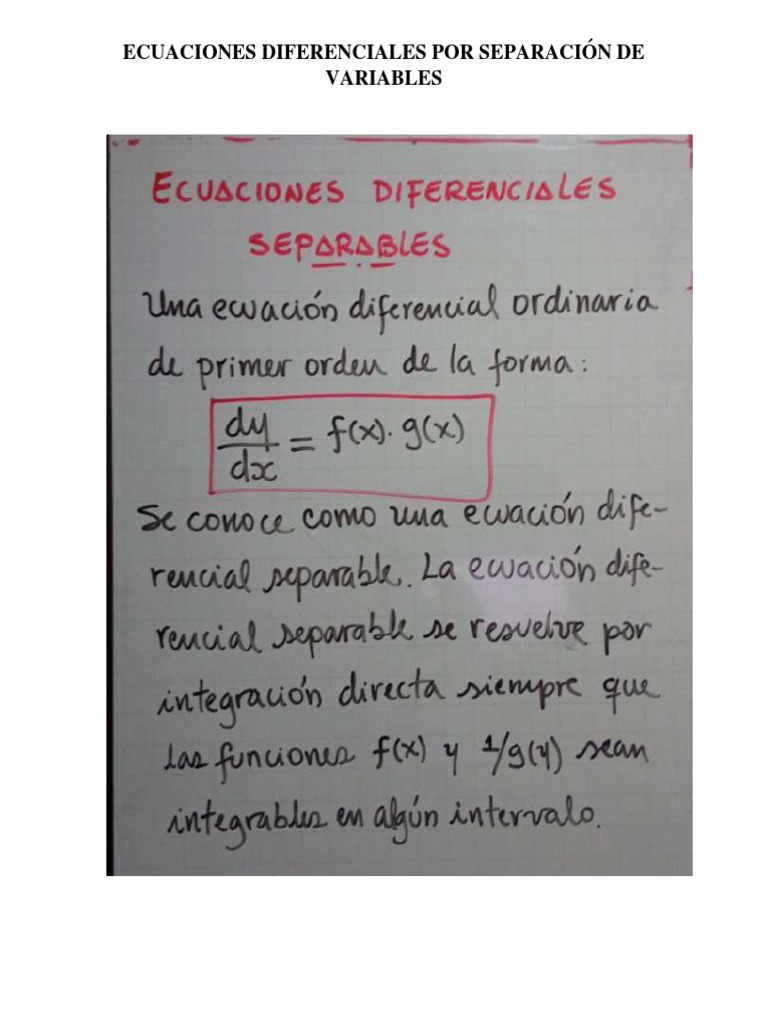 ECUACIONES DIFERENCIALES POR SEPARACIÓN DE
VARIABLES
ECUACIONES DIFERENCIALES
SEPARABLES
Una ecuación diferencial ordinaria
de primer orden de la forma:
dy/dx = f(x). g(x)
Se conoce como una ecuación dife-
rencial separable. La ecuación dife-
rencial separable se resuelve por
integración directa siempre que
las funciones f(x) y 1/g(y) sean
integrables en algún intervalo.